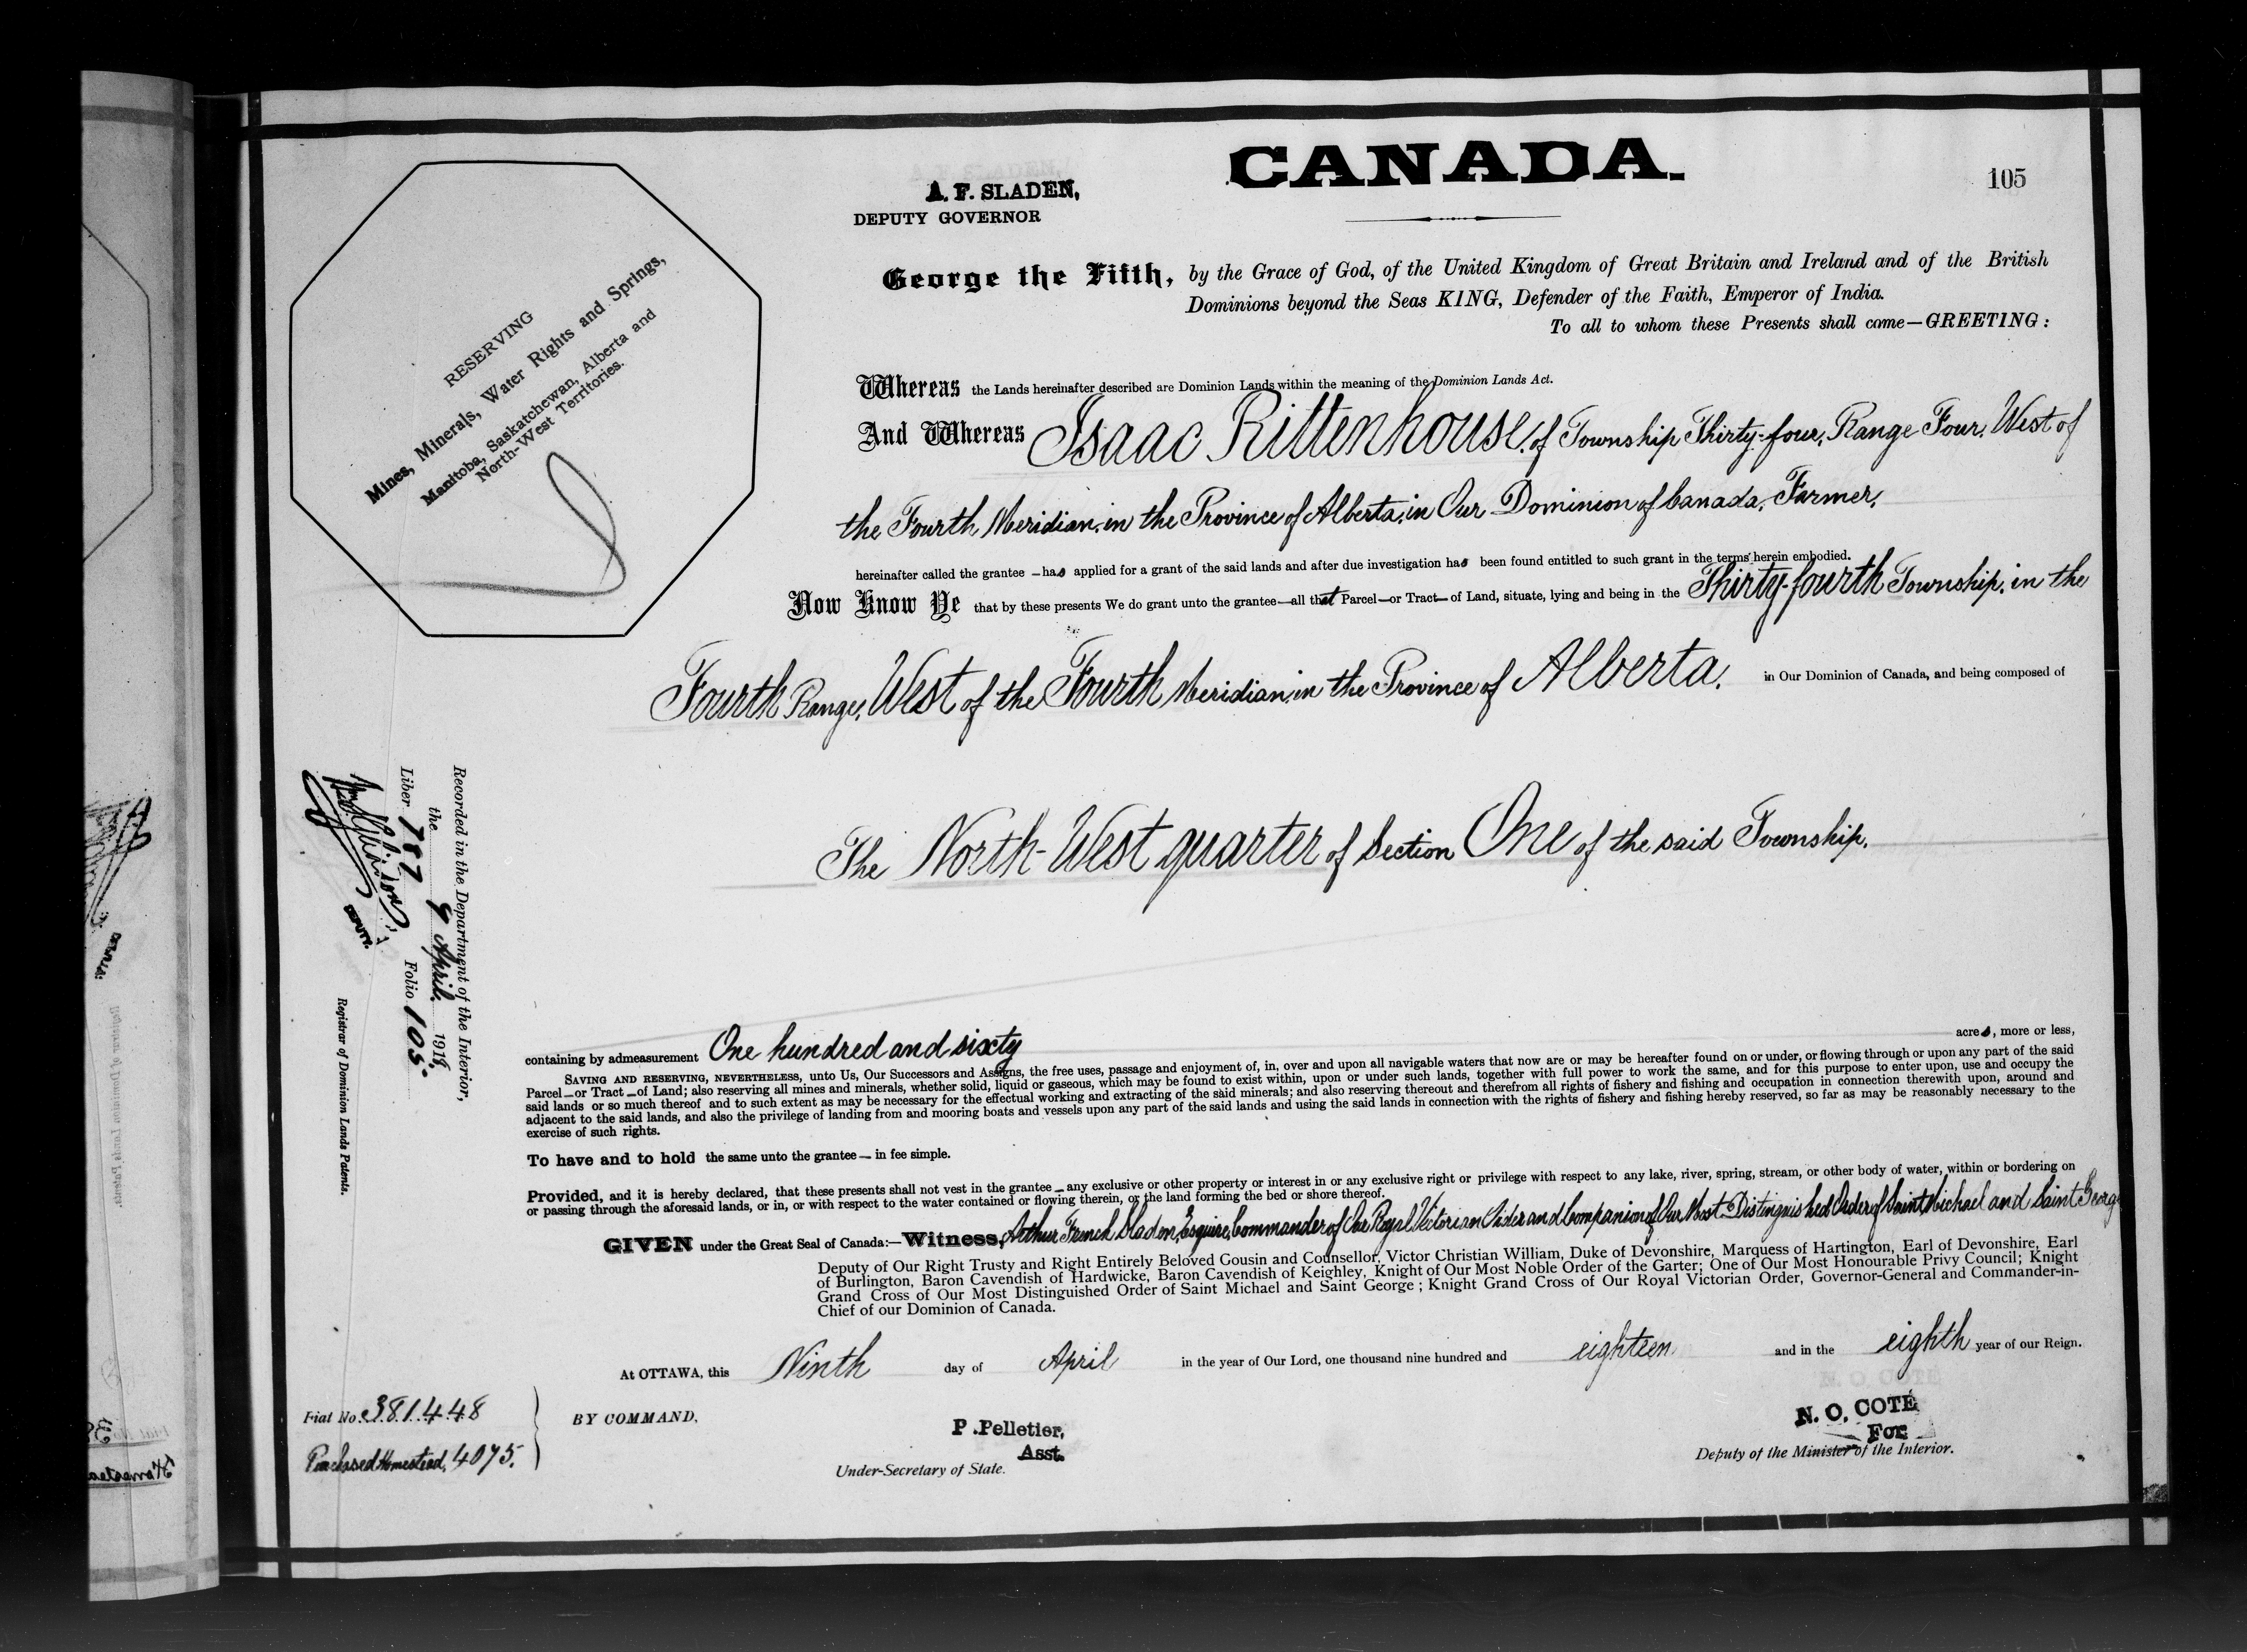 CANADA.
105
A. F. SLADEN,
DEPUTY GOVERNOR
George the Fifth, by the Grace of God, of the United Kingdom of Great Britain and Ireland and of the British
Dominions beyond the Seas KING, Defender of the Faith, Emperor of India.
To all to whom these Presents shall come—GREETING:
RESERVING
Mines, Minerals, Water Rights and Springs,
Manitoba, Saskatchewan, Alberta and
North-West Territories.
Whereas the Lands hereinafter described are Dominion Lands within the meaning of the Dominion Lands Act.
And Whereas Isaac Rittenhouse, of Township Thirty-four, Range Four, West of
the Fourth Meridian, in the Province of Alberta, in Our Dominion of Canada, Farmer,
hereinafter called the grantee — has applied for a grant of the said lands and after due investigation has been found entitled to such grant in the terms herein embodied.
Now Know Ye that by these presents We do grant unto the grantee—all that Parcel—or Tract—of Land, situate, lying and being in the Thirty-fourth Township, in the
Fourth Range, West of the Fourth Meridian, in the Province of Alberta, in Our Dominion of Canada, and being composed of
The North-West quarter of Section One of the said Township.
Recorded in the Department of the Interior,
the 9 April, 1918,
Liber 782 Folio 105.
DEPUTY.
Registrar of Dominion Lands Patents.
containing by admeasurement One hundred and sixty acres, more or less,
SAVING AND RESERVING, NEVERTHELESS, unto Us, Our Successors and Assigns, the free uses, passage and enjoyment of, in, over and upon all navigable waters that now are or may be hereafter found on or under, or flowing through or upon any part of the said
Parcel—or Tract—of Land; also reserving all mines and minerals, whether solid, liquid or gaseous, which may be found to exist within, upon or under such lands, together with full power to work the same, and for this purpose to enter upon, use and occupy the
said lands or so much thereof and to such extent as may be necessary for the effectual working and extracting of the said minerals; and also reserving thereout and therefrom all rights of fishery and fishing and occupation in connection therewith upon, around and
adjacent to the said lands, and also the privilege of landing from and mooring boats and vessels upon any part of the said lands and using the said lands in connection with the rights of fishery and fishing hereby reserved, so far as may be reasonably necessary to the
exercise of such rights.
To have and to hold the same unto the grantee — in fee simple.
Provided, and it is hereby declared, that these presents shall not vest in the grantee — any exclusive or other property or interest in or any exclusive right or privilege with respect to any lake, river, spring, stream, or other body of water, within or bordering on
or passing through the aforesaid lands, or in, or with respect to the water contained or flowing therein, or the land forming the bed or shore thereof.
GIVEN under the Great Seal of Canada:—Witness, Arthur French Sladen, Esquire, Commander of Our Royal Victorian Order and Companion of Our Most Distinguished Order of Saint Michael and Saint George
Deputy of Our Right Trusty and Right Entirely Beloved Cousin and Counsellor, Victor Christian William, Duke of Devonshire, Marquess of Hartington, Earl of Devonshire, Earl
of Burlington, Baron Cavendish of Hardwicke, Baron Cavendish of Keighley, Knight of Our Most Noble Order of the Garter; One of Our Most Honourable Privy Council; Knight
Grand Cross of Our Most Distinguished Order of Saint Michael and Saint George; Knight Grand Cross of Our Royal Victorian Order, Governor-General and Commander-in-
Chief of our Dominion of Canada.
At OTTAWA, this Ninth day of April in the year of Our Lord, one thousand nine hundred and eighteen and in the eighth year of our Reign.
Fiat No. 381448
Purchased Homestead, 4075.
BY COMMAND,
P. Pelletier,
Asst.
Under-Secretary of State.
N. O. COTÉ
For
Deputy of the Minister of the Interior.